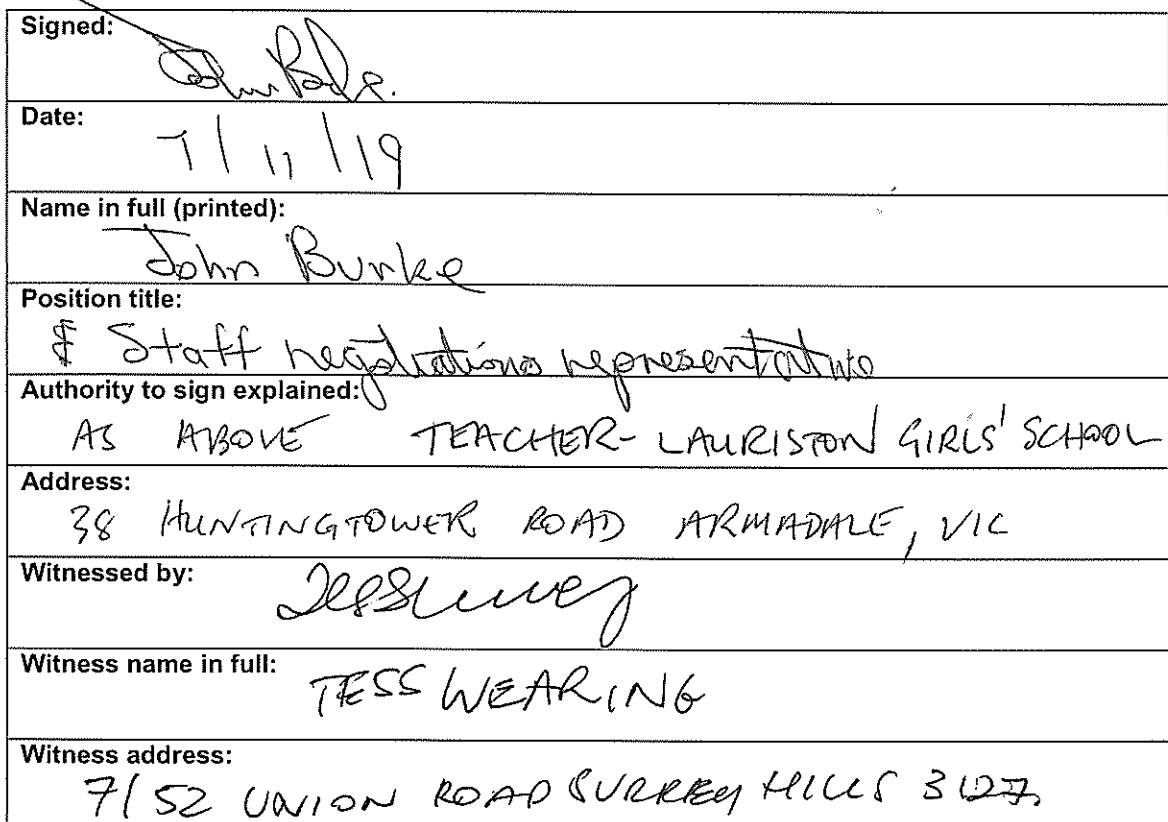 Signed:
Date:
7/11/19
Name in full (printed):
John Burke
Position title:
Staff negotiations representative
Authority to sign explained:
AS ABOVE TEACHER- LAURISTON GIRLS' SCHOOL
Address:
38 HUNTINGTOWER ROAD ARMADALE, VIC
Witnessed by:
Witness name in full:
TESS WEARING
Witness address:
7/52 UNION ROAD SURREY HILLS 3127